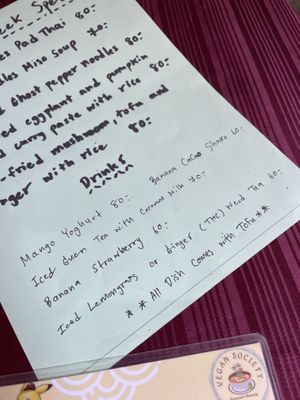 eek Spe
es Pad Thai 80:-
les Miso Soup 70:-
d Ghost Pepper noodles 80:-
ed eggplant and pumpkin
d curry paste with rice 80:-
-fried mushroom, tofu and
nger with rice 80:-
Drinks
Mango Yoghurt 80:- Banana Cacao Shake 60:-
Iced Green Tea with Coconut Milk 70:-
Banana Strawberry 60:-
Iced Lemongrass or Ginger (THC) Weed Tea 60:-
** All Dish Comes with Tofu **
VEGAN SOCIETY